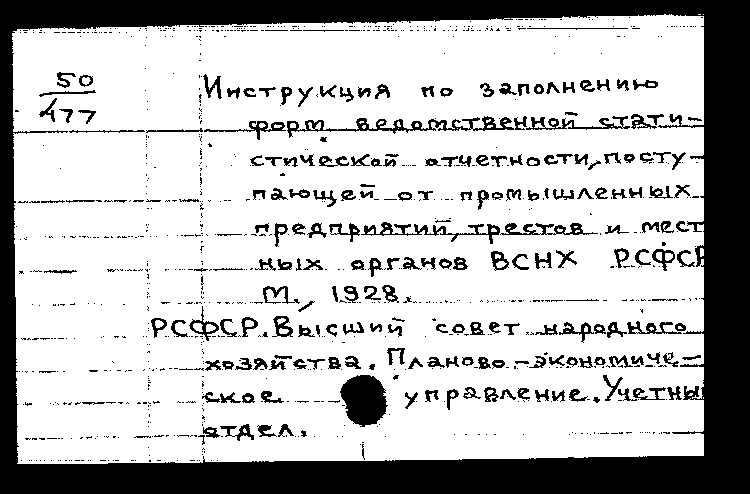 50
477
Инструкция по заполнению
форм ведомственной стати-
стической отчетности, посту-
пающей от промышленных
предприятий, трестов и мест
ных органов ВСНХ РСФСР
М., 1928.
РСФСР. Высший совет народного
хозяйства. Планово-экономиче-
ское управление. Учетны
отдел.